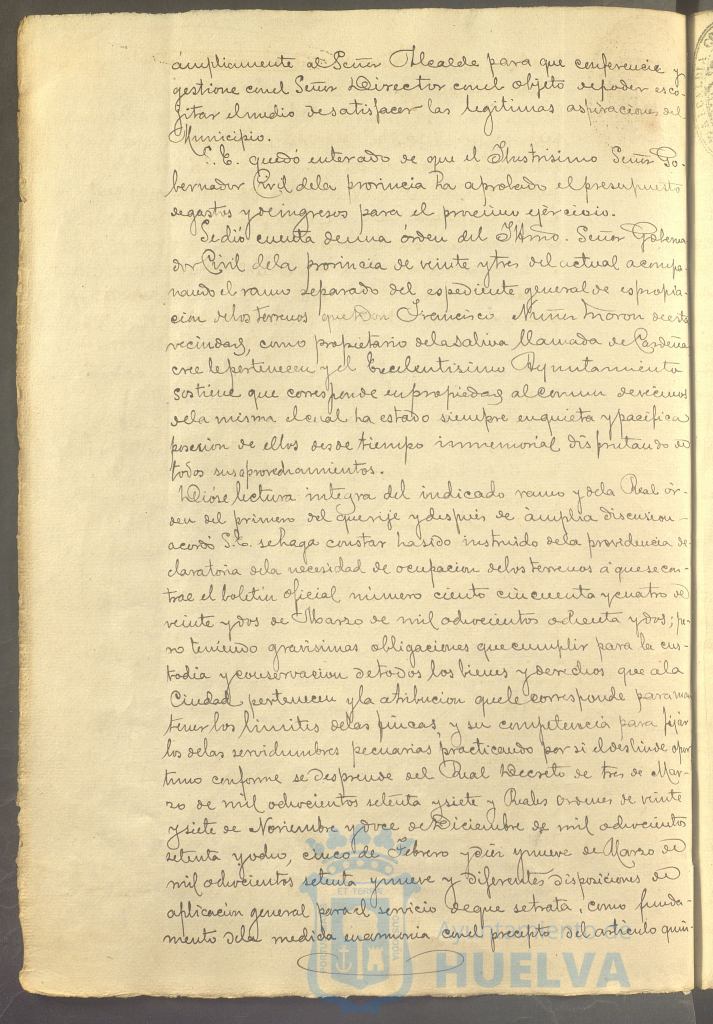 ámpliamente al Señor Alcalde para que conferencie y
gestione con el Señor Director con el objeto de poder esco-
gitar el medio de satisfacer las legitimas aspiraciones del
Municipio.
S. E. quedó enterado de que el Ilustrisimo Señor Go-
bernador Civil de la provincia ha aprobado el presupuesto
de gastos y de ingresos para el procsimo ejercicio.
Se dió cuenta de una órden del Iltmo. Señor Goberna
dor Civil de la provincia de veinte y tres del actual acompa-
ñando el ramo separado del espediente general de espropia-
cion de los terrenos que Don Francisco Nuñez Moron de esta
vecindad, como propietario de la salina llamada de Cardeña
cree le pertenecen y el Excelentisimo Ayuntamiento
sostiene que corresponde en propiedad al comun de vecinos
de la misma el cual ha estado siempre en quieta y pacifica
posesion de ellos desde tiempo inmemorial disfrutando de
todos sus aprovechamientos.
Dióse lectura integra del indicado ramo y de la Real ór-
den del primero del que rije y despues de ámplia discusion
acordó S. E. se haga constar ha sido instruido de la providencia de-
claratoria de la necesidad de ocupacion de los terrenos á que se con-
trae el boletin oficial número ciento cincuenta y cuatro de
veinte y dos de Marzo de mil ochocientos ochenta y dos; pe-
ro teniendo gravisimas obligaciones que cumplir para la cus-
todia y conservacion de todos los bienes y derechos que á la
Ciudad pertenecen y la atribucion que le corresponde para man
tener los limites de las fincas, y su competencia para fijar
los de las servidumbres pecuarias, practicando por si el deslinde opor
tuno conforme se desprende del Real Decreto de tres de Mar-
zo de mil ochocientos setenta y siete y Reales ordenes de veinte
y siete de Noviembre y doce de Diciembre de mil ochocientos
setenta y ocho, cinco de Febrero y diez y nueve de Marzo de
mil ochocientos setenta y nueve y diferentes disposiciones de
aplicacion general para el servicio de que se trata, como funda-
mento de la medida en armonia con el precepto del articulo quin-
Ayuntamiento de
HUELVA